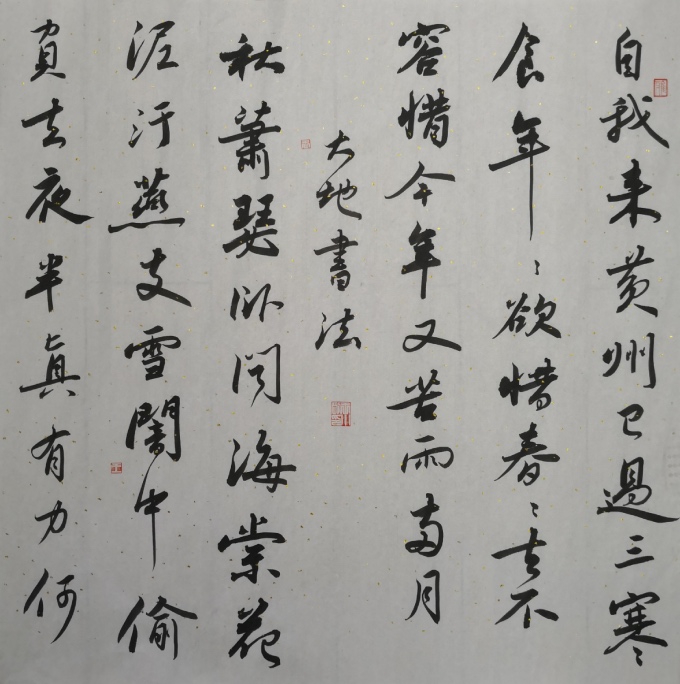 自我来黄州已過三寒
食年〻欲惜春〻去不
容惜今年又苦雨兩月
秋蕭瑟卧聞海棠花
泥汙燕支雪闇中偷
負去夜半真有力何
大地書法